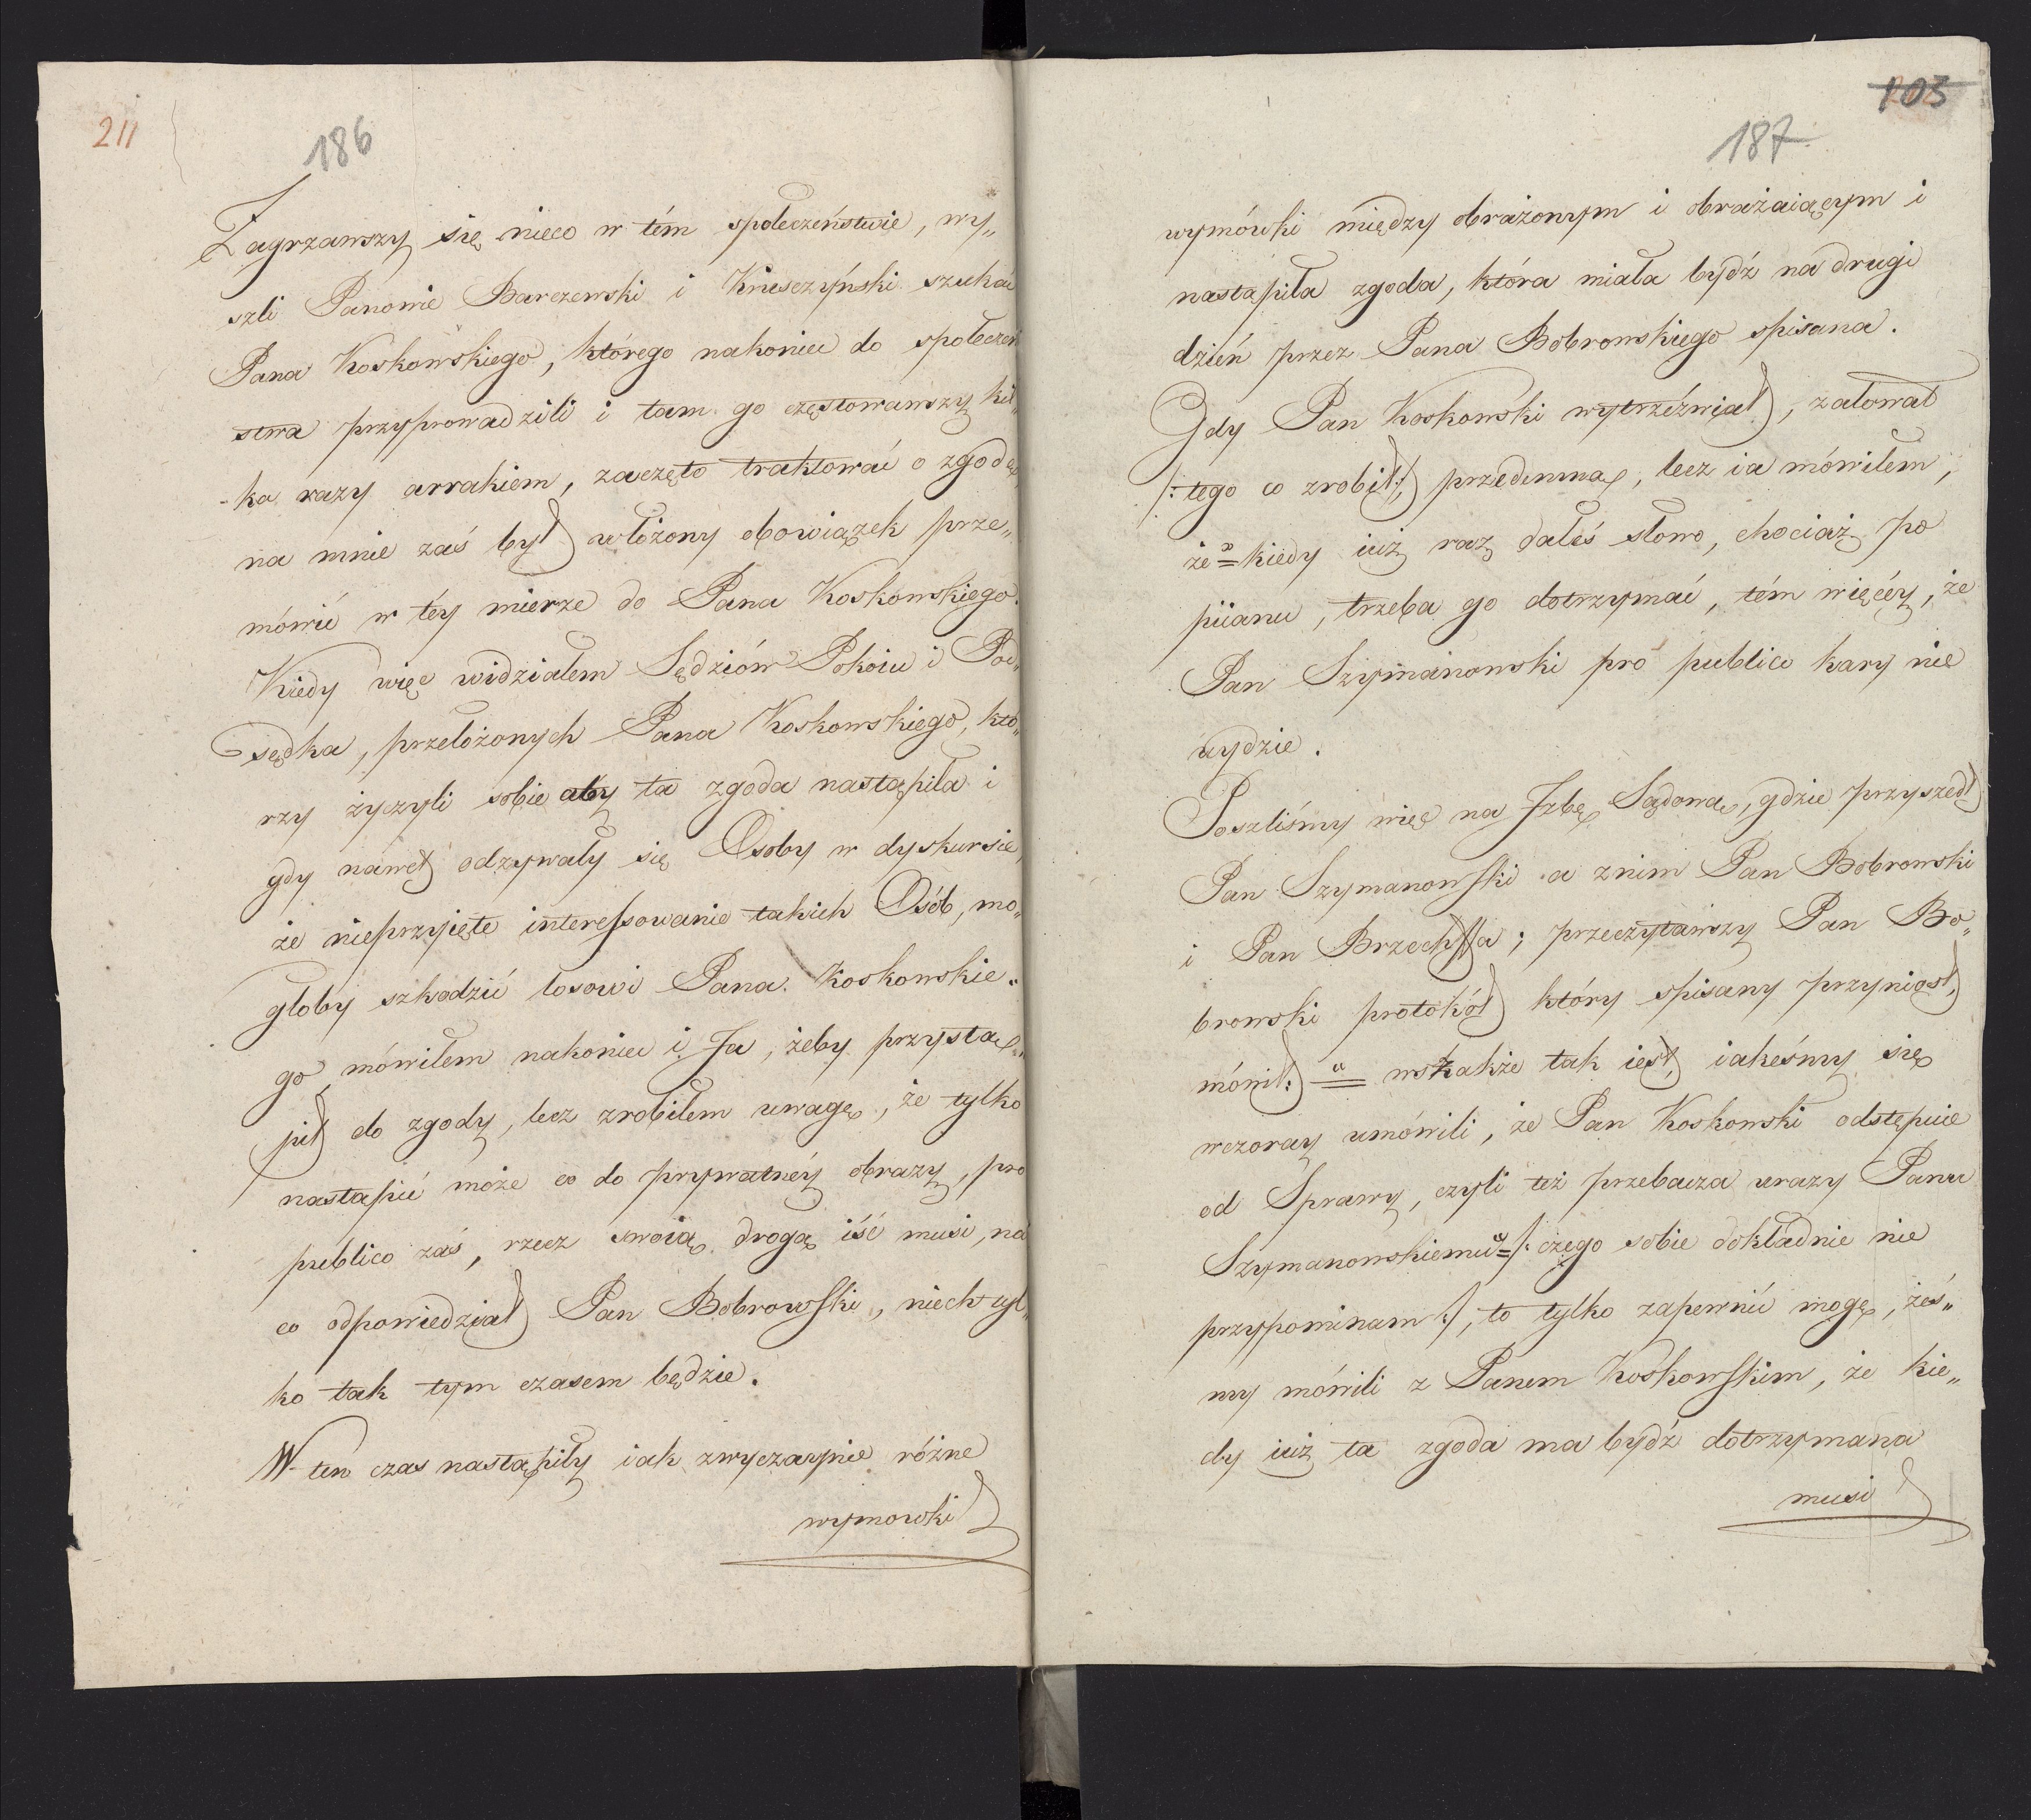 211
186
Zagrzawszy się nieco w tém społeczeństwie, wy„
szli Panowie Barczewski i Kruszyński szukać
Pana Koskowskiego, którego nakoniec do społeczeń
stwa przyprowadzili i tam go częstowawszy kil„
ka razy arrakiem, zaczęto traktować o zgodę,
na mnie zaś był włożony obowiązek prze„
mówić w téy mierze do Pana Koskowskiego.
Kiedy więc widziałem Sędziów Pokoiu i Pod„
sędka, przełożonych Pana Koskowskiego, któ„
rzy życzyli sobie aby ta zgoda nastąpiła i
gdy nawet odzywały się Osoby w dyskursie,
że nieprzyięte interessowanie takich Osób, mo„
głoby szkodzić losowi Pana Koskowskie„
go, mówiłem nakoniec i Ja, żeby przystą„
pił do zgody, lecz zrobiłem uwagę, że tylko
nastąpić może co do prywatnéy obrazy, pro
publico zaś, rzecz swoią drogą iść musi, na
co odpowiedział Pan Bobrowski, niech tyl„
ko tak tym czasem będzie.
W ten czas nastąpiły iak zwyczaynie różne
wymowki
103
187
wymówki między obrażonym i obrażaiącym i
nastąpiła zgoda, która miała bydź na drugi
dzień przez Pana Bobrowskiego spisana.
Gdy Pan Koskowski wytrzeźwiał, załował
/: tego co zrobił :/ przedemną, lecz ia mówiłem,
że „= kiedy iuż raz dałeś słowo, chociaż po
piianu, trzeba go dotrzymać, tém więcéy, że
Pan Szymanowski pro publico kary nie
uydzie.
Poszliśmy więc na Izbę Sądową, gdzie przyszedł
Pan Szymanowski a znim Pan Bobrowski
i Pan Brzechffa; przeczytawszy Pan Bo„
browski protokół który spisany przyniosł,
mówił: „= wszakże tak iest, iakeśmy się
wczoray umówili, że Pan Koskowski odstępuie
od Sprawy, czyli też przebacza urazy Panu
Szymanowskiemu“= /: czego sobie dokładnie nie
przypominam :/, to tylko zapewnić mogę, żeś„
my mówili z Panem Koskowskim, że kie„
dy iuż ta zgoda ma bydź dotrzymana
musi